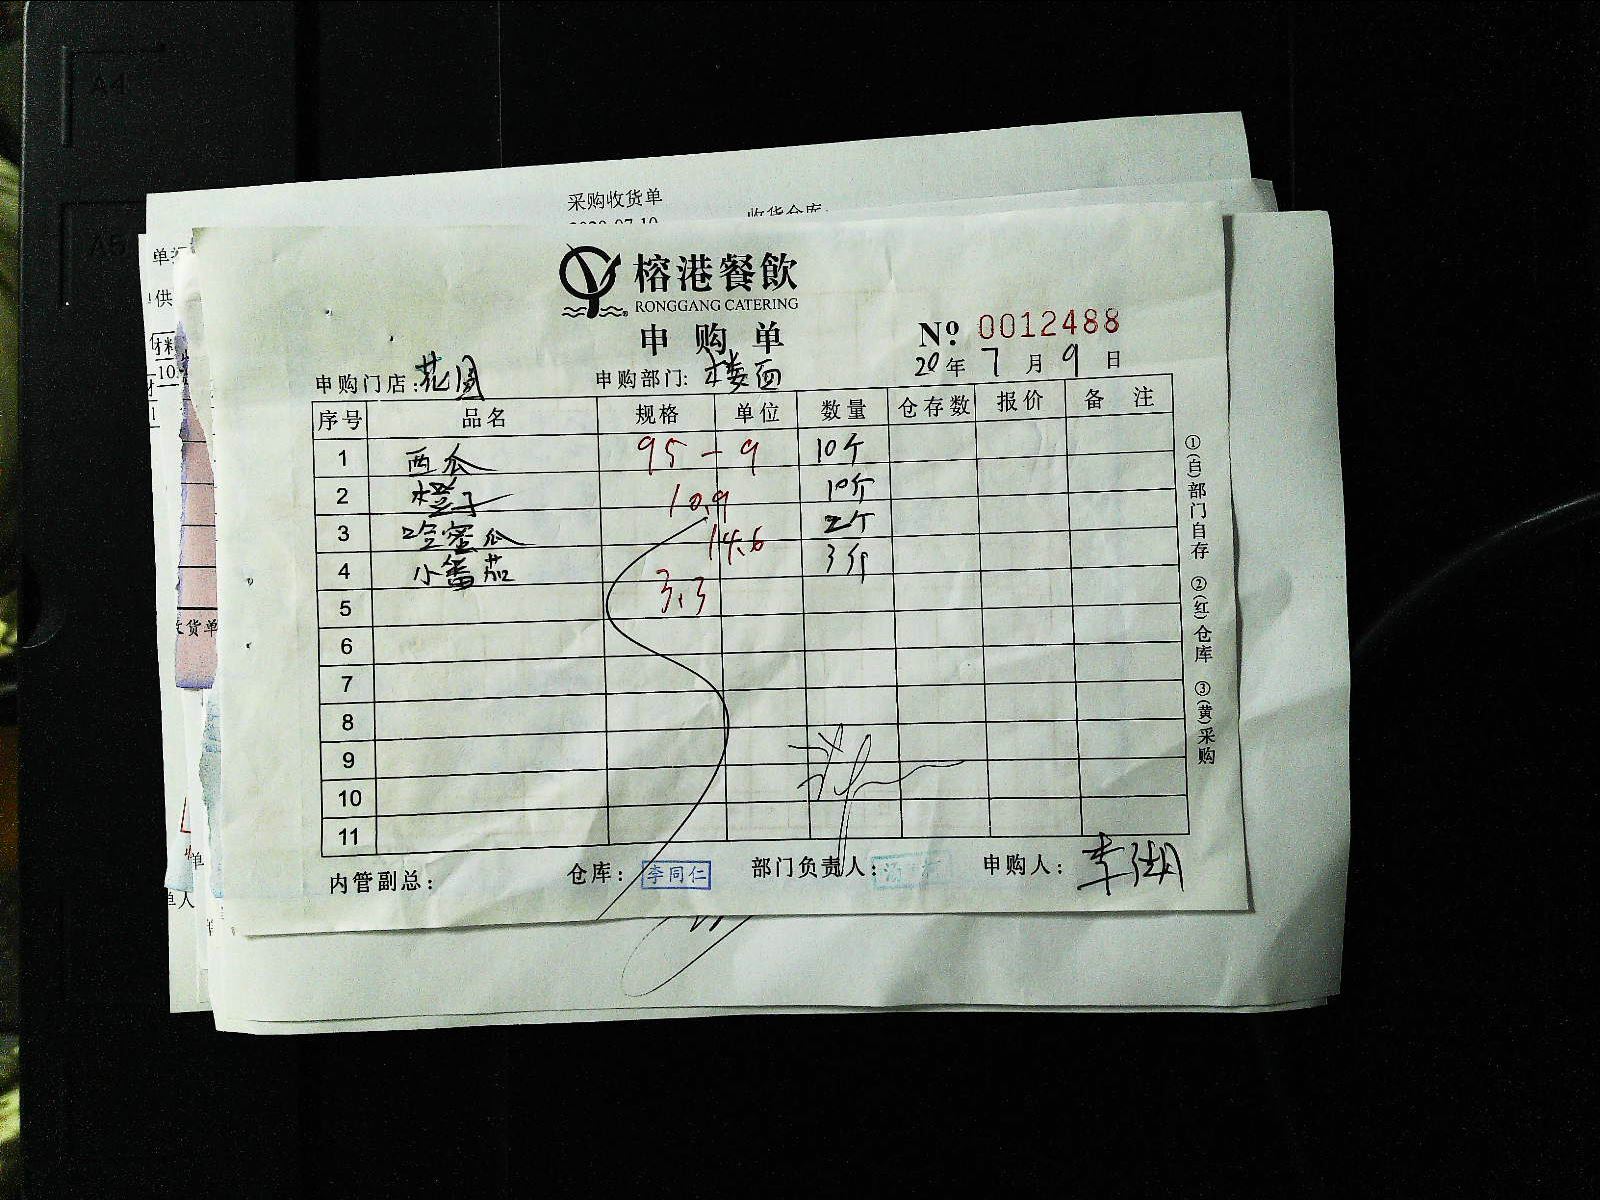 A4
A5
采购收货单
2020-07-10
收货仓库:
单
供
材料
10
榕港餐飲
RONGGANG CATERING
申购单
Nº: 0012488
20年7月9日
申购门店: 花园
申购部门: 楼面
序号 品名 规格 单位 数量 仓存数 报价 备 注
1 西瓜 95-9 10个
2 橙子 10.9 10个
3 哈蜜瓜 14.6 2个
4 小番茄 3.3 3斤
5
6
7
8
9
10
11
①(白)部门自存 ②(红)仓库 ③(黄)采购
内管副总:
仓库: 李同仁
部门负责人:
申购人:
收货单
单
单人